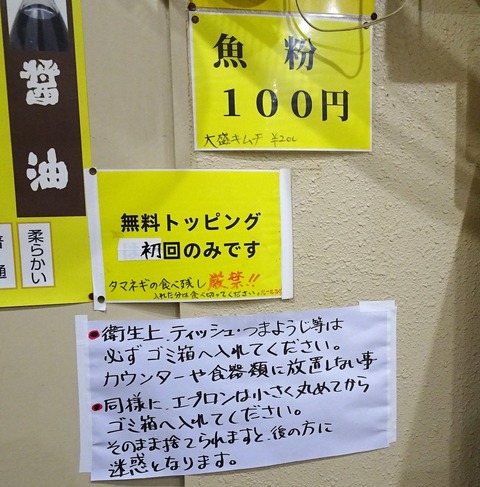 醤油
普通
柔らかい
魚粉
100円
大盛キムチ ¥200
無料トッピング
初回のみです
タマネギの食べ残し厳禁!!
入れた分は食べ切ってください。
●衛生上、ティッシュ・つまようじ等は
必ずゴミ箱へ入れてください。
カウンターや食器類に放置しない事
●同様に、エプロンは小さく丸めてから
ゴミ箱へ入れてください。
そのまま捨てられますと、後の方に
迷惑となります。